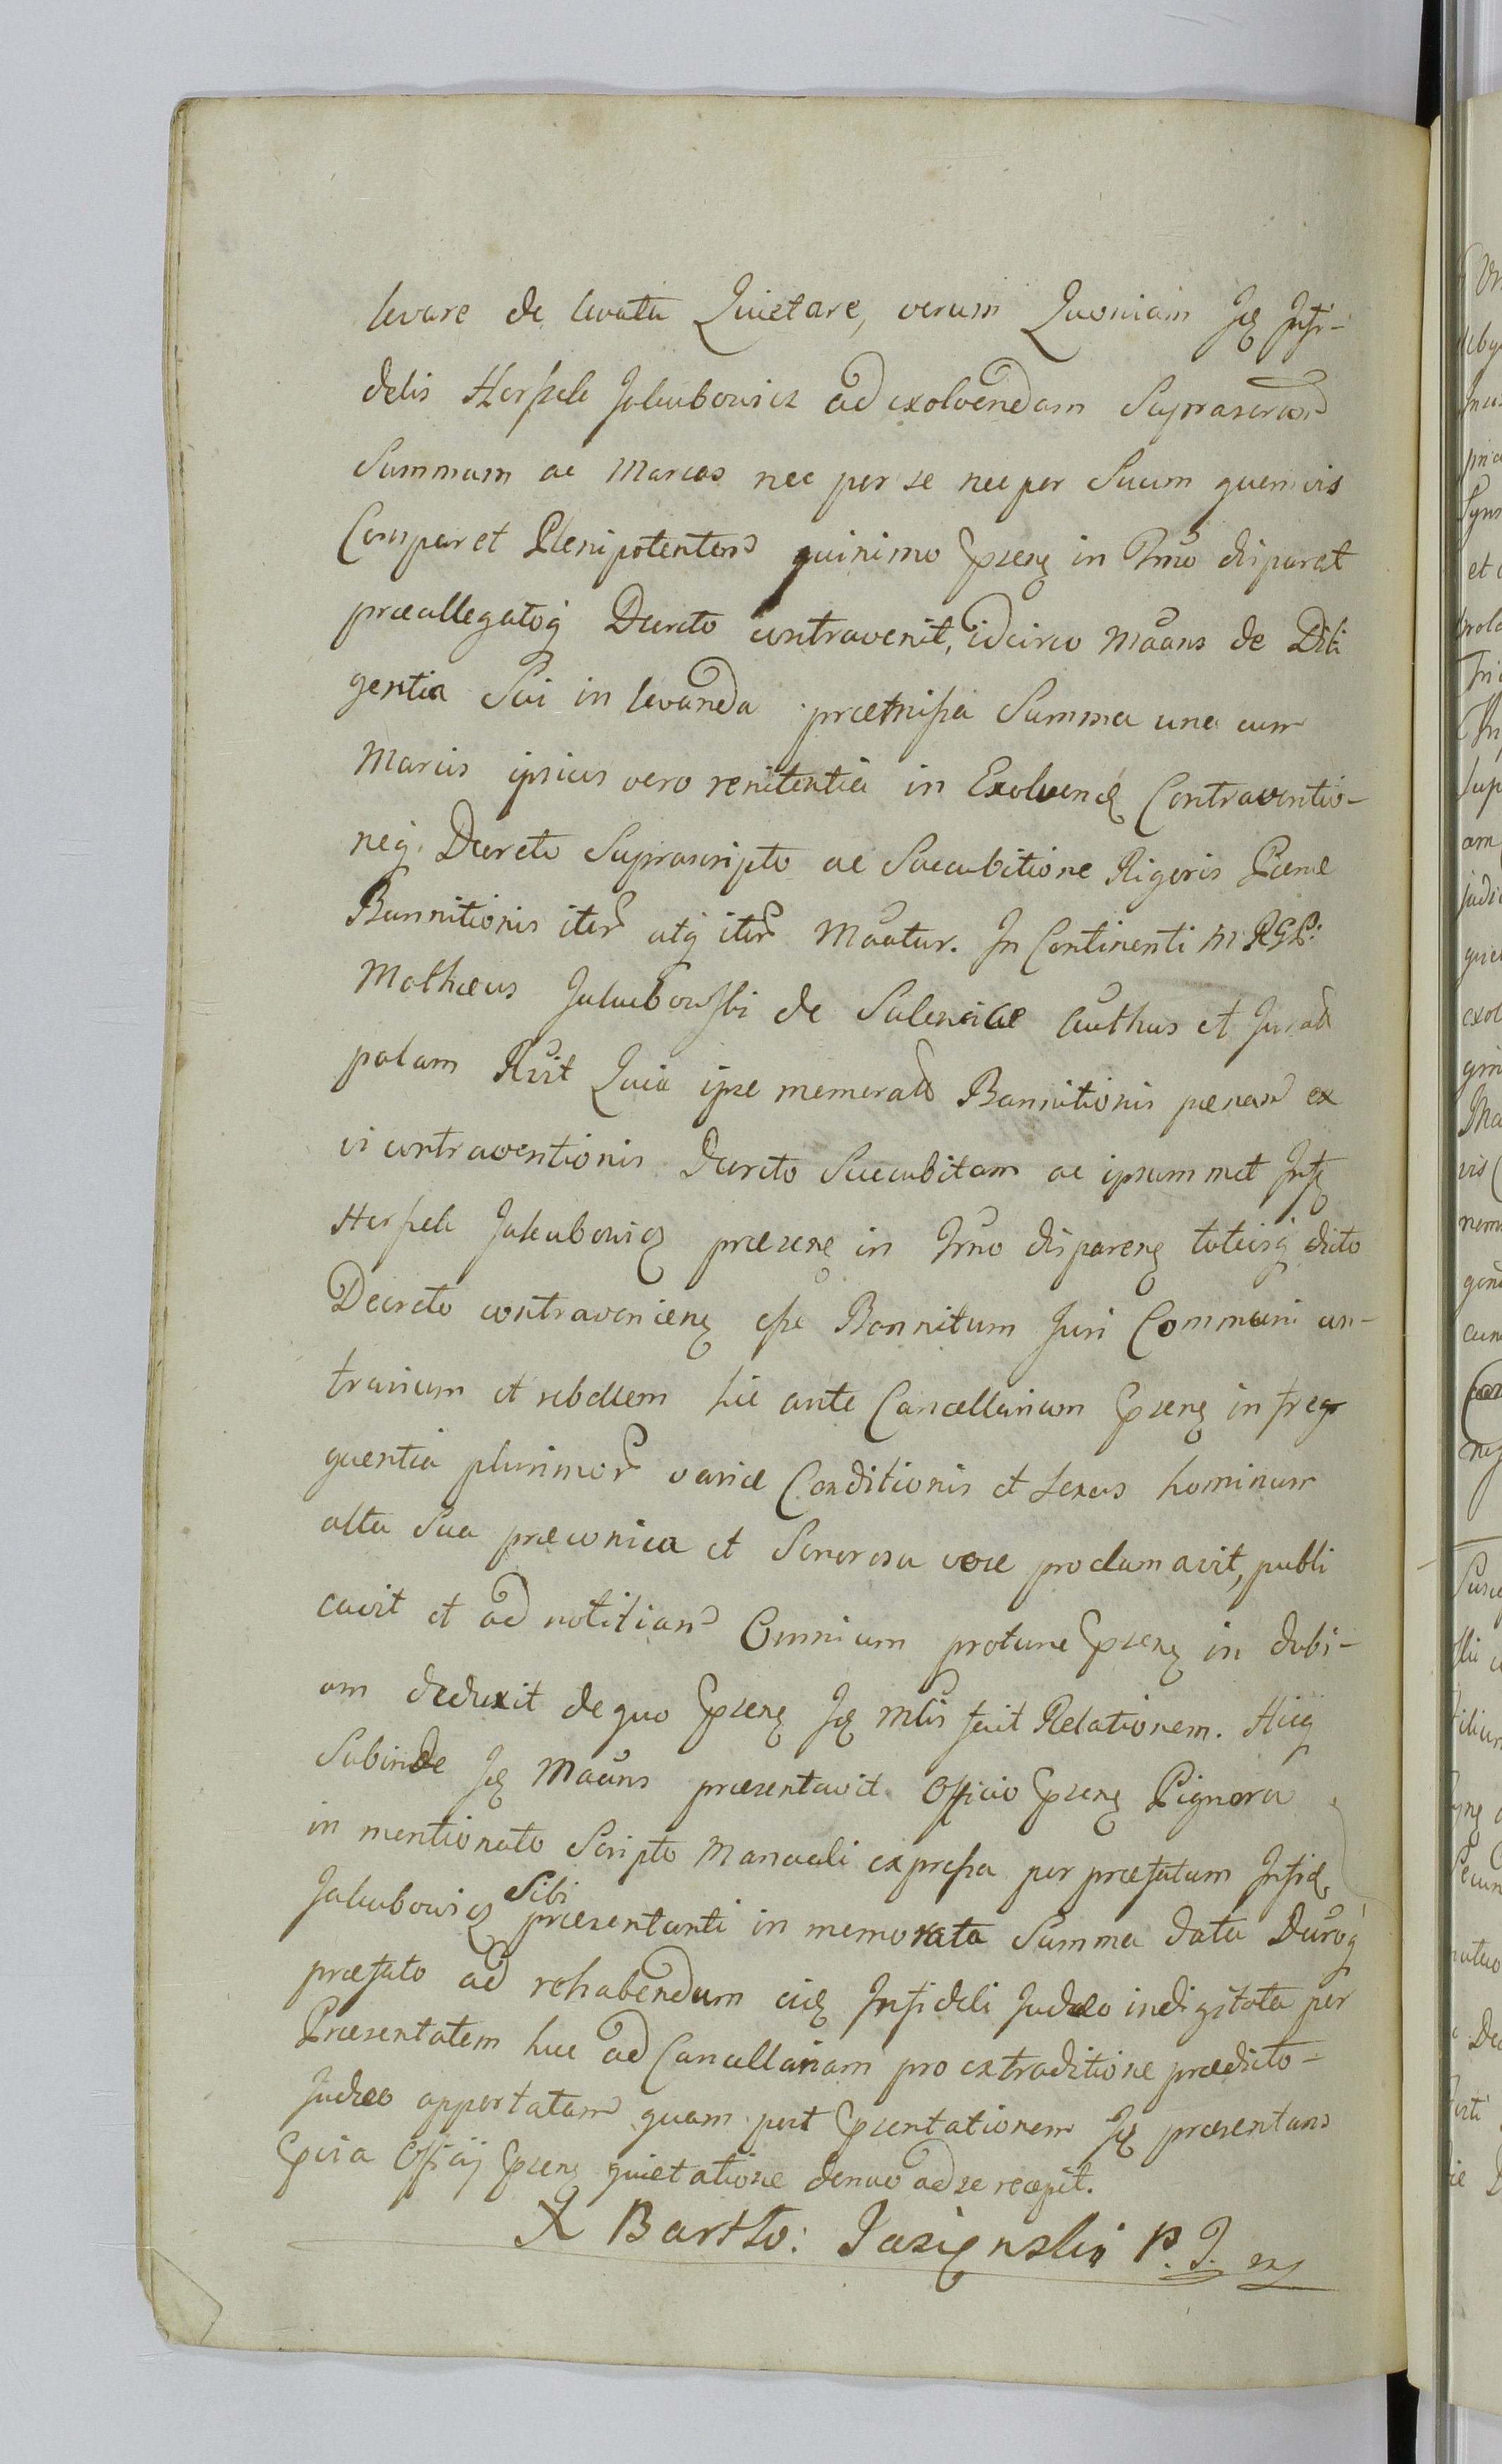 levare de levata Quietare, verum Quoniam Jdẽ Infi-
delis Herszek Jakubowicz ad exolvendam Suprascrand
Summam ac Marcas nec per se nec per Suum quemvis
Comparet Plenipotentem quinimo Ppsens in Trmo disparet
præallegatoq Decreto contravenit, idcirco Maãns de Dili
gentia Sui in levanda præmissa Summa una cum
Marcis ipsius vero renitentia in Exolvendẽ Contraventio-
neq. Decreto Suprascripto ac Succubitione Rigoris Pænæ
Bannitionis iter atq iter Maãtur. In Continenti M. RGP:
Mathæus Jakubowski de Salencice Authus et Juratꝰ
palam Rłvit Quia ipse memoratꝰ Bannitionis pænam ex
vi contraventionis Decreto Succubitam ac ipsummet Infẽ
Herszek Jakubowicz præsens in Trmo disparens totiusq dicto
Decreto contraveniens esse Bannitum Juri Communi con-
trarium et rebellem hic ante Cancellariam Ppsens in freq
quentia plurimor variæ Conditionis et sexus hominum
alta Sua præconica et Sonorosa voce proclamavit, publi
cavit et ad notitiam Omnium protunc Ppsens in dubi-
am deduxit de quo Ppsens Jdẽ Mlis fecit Relationem. Hicq
Subinde Jdẽ Maãns præsentavit Officio Ppsens Pignora
in mentionato Scripto Manuali expressa per præfatum Infid.
Jakubowicz Sibi præsentanti in memorata Summa data Decroq
præfato ad rehabendum eidẽ Infideli Judæo indigitata per
Præsentatem huc ad Cancellariam pro extraditione prædicto-
Judæo apportatam quam post Ppsentationem Jdẽ præsentans
Ppvia Officij Ppsens quietatione denuo ad se recepit.
X Bartło: Jasięnski P. J. mp